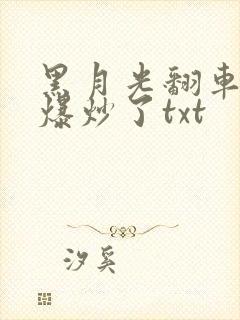 黑月光翻車
爆炒了txt
汐奚